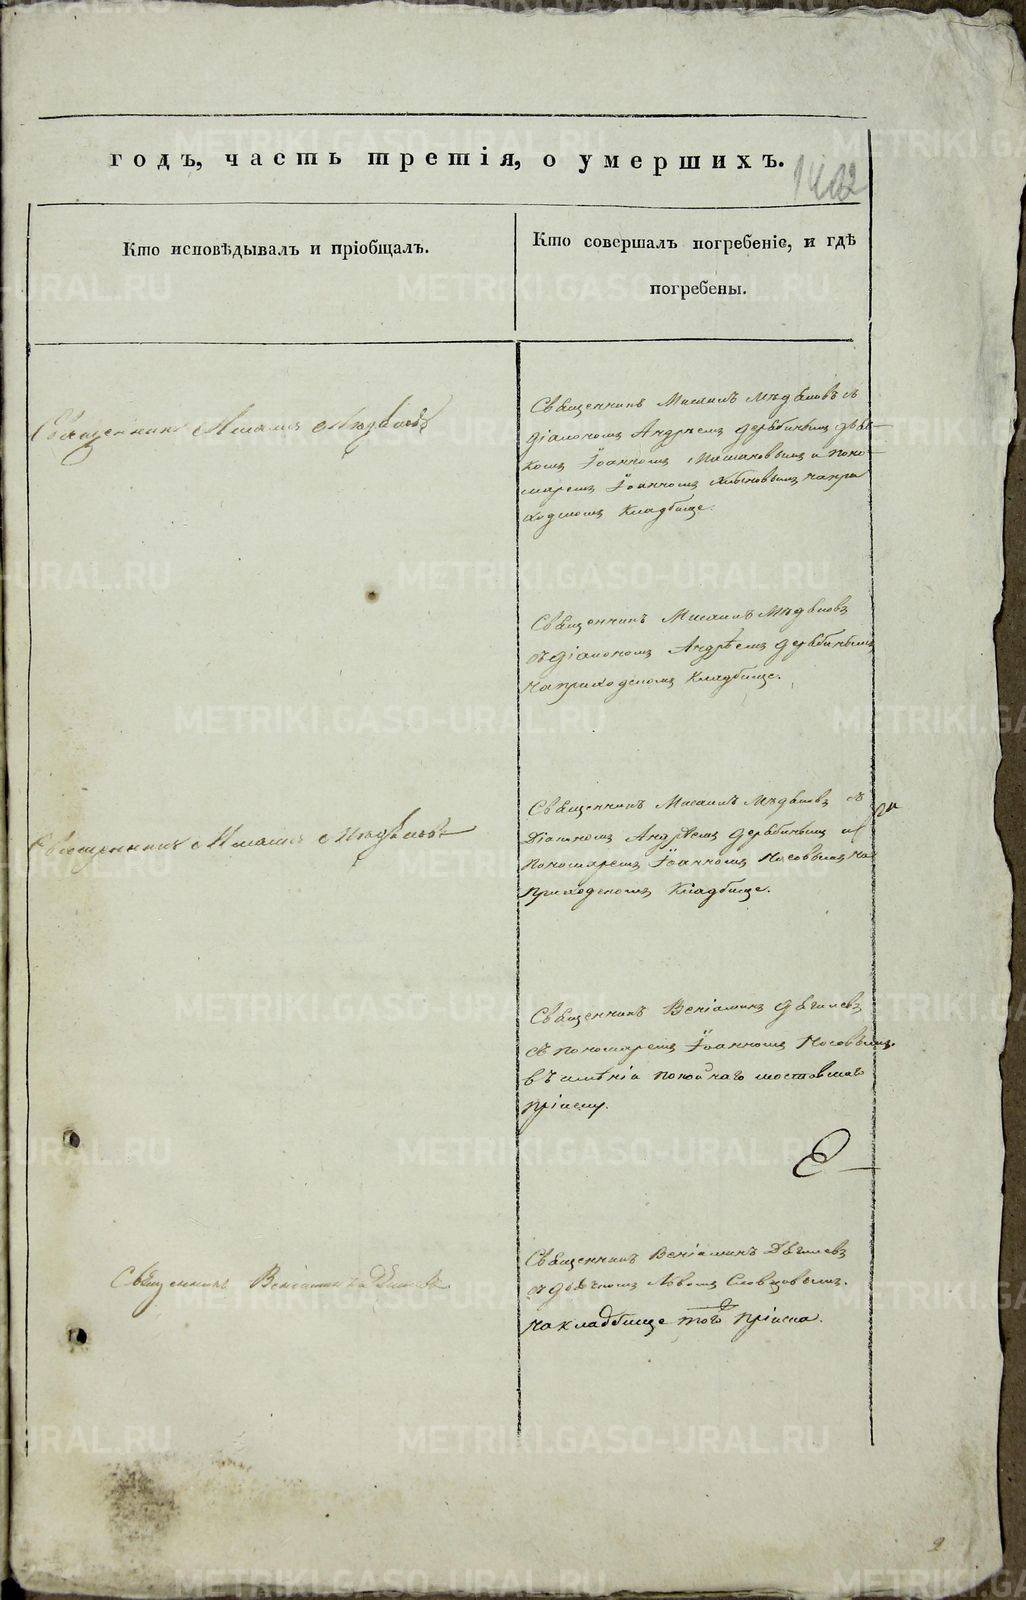 годъ, часть третія, о умершихъ.
1402
Кто исповѣдывалъ и пріобщалъ.
Кто совершалъ погребеніе, и гдѣ
погребены.
Священникъ Мисаилъ
Священникъ Мисаилъ съ
діакономъ Андреемъ Дерябинымъ дьяч-
комъ Іоанномъ и поно-
маремъ Іоанномъ на при
ходскомъ кладбище.
Священникъ Мисаилъ
съ діакономъ Андреемъ Дерябинымъ
на приходскомъ кладбище.
Священникъ Мисаилъ
Священникъ Мисаилъ съ
Діакономъ Андреемъ Дерябинымъ и
пономаремъ Іоанномъ Носовымъ на
приходскомъ кладбище.
Священникъ Веніаминъ Дягилевъ
съ пономаремъ Іоанномъ Носовымъ
пріиску.
Священникъ Веніаминъ Дягилевъ
Священникъ Веніаминъ Дягилевъ
съ дьячкомъ Львомъ Словцовымъ.
на кладбище того пріиска.
METRIKI.GASO-URAL.RU